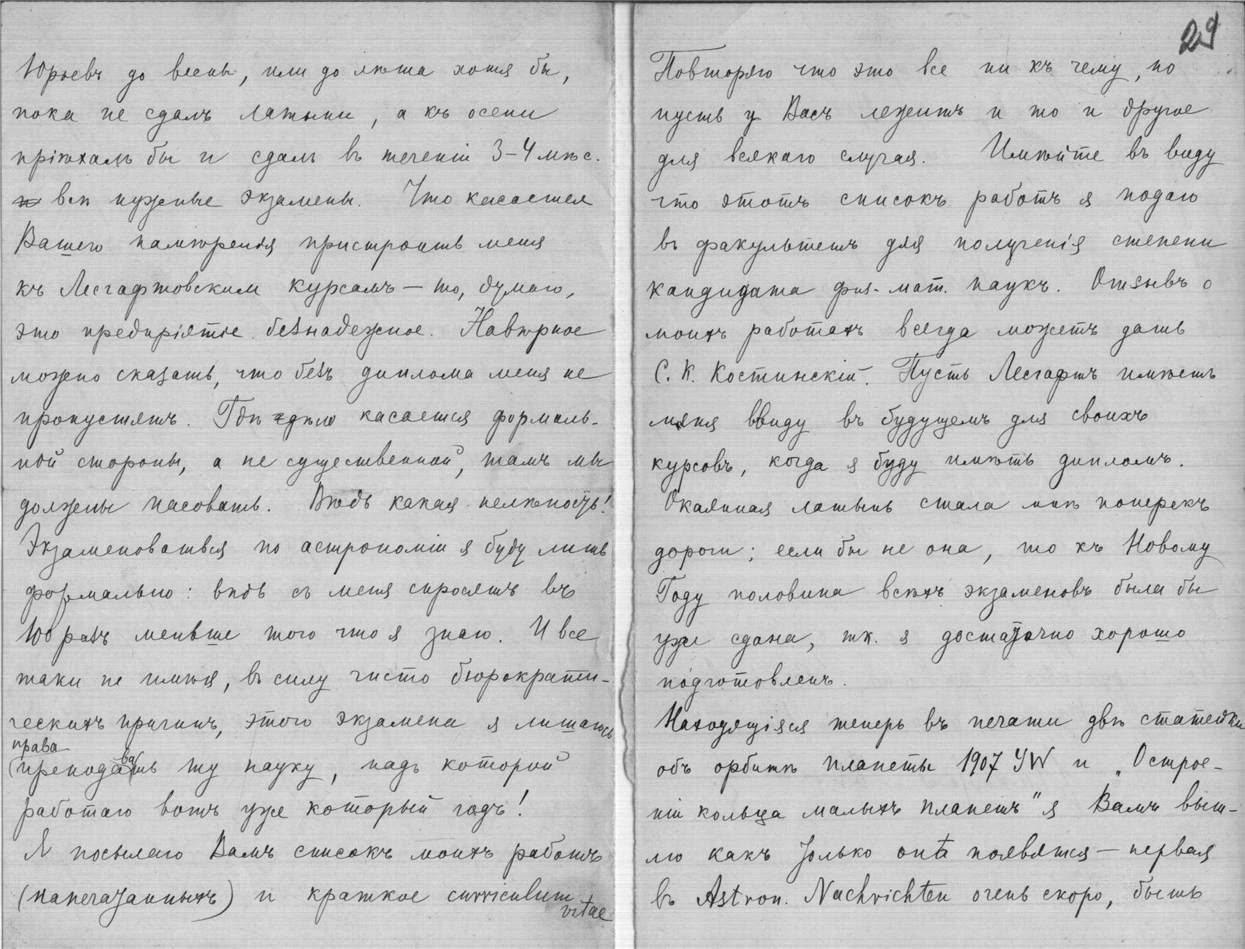 Юрьевъ до весны, или до лѣта хотя бы,
пока не сдалъ латыни, а къ осени
пріѣхалъ бы и сдалъ въ теченіи 3–4 мѣс.
всѣ нужные экзамены. Что касается
Вашего намѣренія пристроить меня
къ Лесгафтовским курсамъ — то, думаю,
это предпріятіе безнадежное. Навѣрное
можно сказать, что безъ диплома меня не
пропустятъ. Гдѣ дѣло касается формаль-
ной стороны, а не существенной, тамъ мы
должны пасовать. Вѣдь какая нелѣпость!
Экзаменоваться по астрономіи я буду лишь
формально: вѣдь съ меня спросятъ въ
Юрьевѣ меньше того что я знаю. И все
таки не имѣя, въ силу чисто бюрократи-
ческихъ причинъ, этого экзамена я лишаюсь
права
преподавать ту науку, надъ которой
работаю вотъ уже который годъ!
Я посылаю Вамъ списокъ моихъ работъ
(напечатанныхъ) и краткое curriculum
vitae
29
Повторяю что это все ни къ чему, но
пусть у Васъ лежитъ и то и другое
для всякаго случая. Имѣйте въ виду
что этотъ списокъ работъ я подаю
въ факультетъ для полученія степени
кандидата физ-мат. наукъ. Отзывъ о
моихъ работахъ всегда можетъ дать
С. К. Костинскій. Пусть Лесгафтъ имѣетъ
меня ввиду въ будущемъ для своихъ
курсовъ, когда я буду имѣть дипломъ.
Окаянная латынь стала мнѣ поперекъ
дороги; если бы не она, то къ Новому
Году половина всѣхъ экзаменовъ была бы
уже сдана, тк. я достаточно хорошо
подготовленъ.
Находящіяся теперь въ печати двѣ статейки
объ орбитѣ планеты 1907 YW и „О строе-
ніи кольца малыхъ планетъ" я Вамъ выш-
лю какъ только онѣ появятся — первая
въ Astron. Nachrichten очень скоро, быть